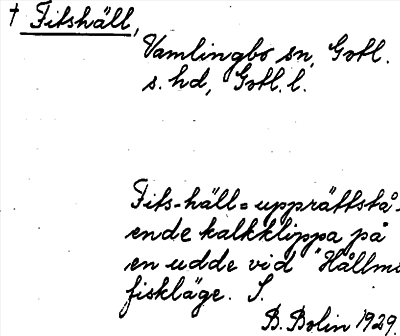 † Fitshäll,
Vamlingbo sn, Gotl.
s. hd, Gotl. l.
Fits-häll = upprättstå-
ende kalkklippa på
en udde vid "Hållms
fiskläge. S.
B. Bolin 1929.